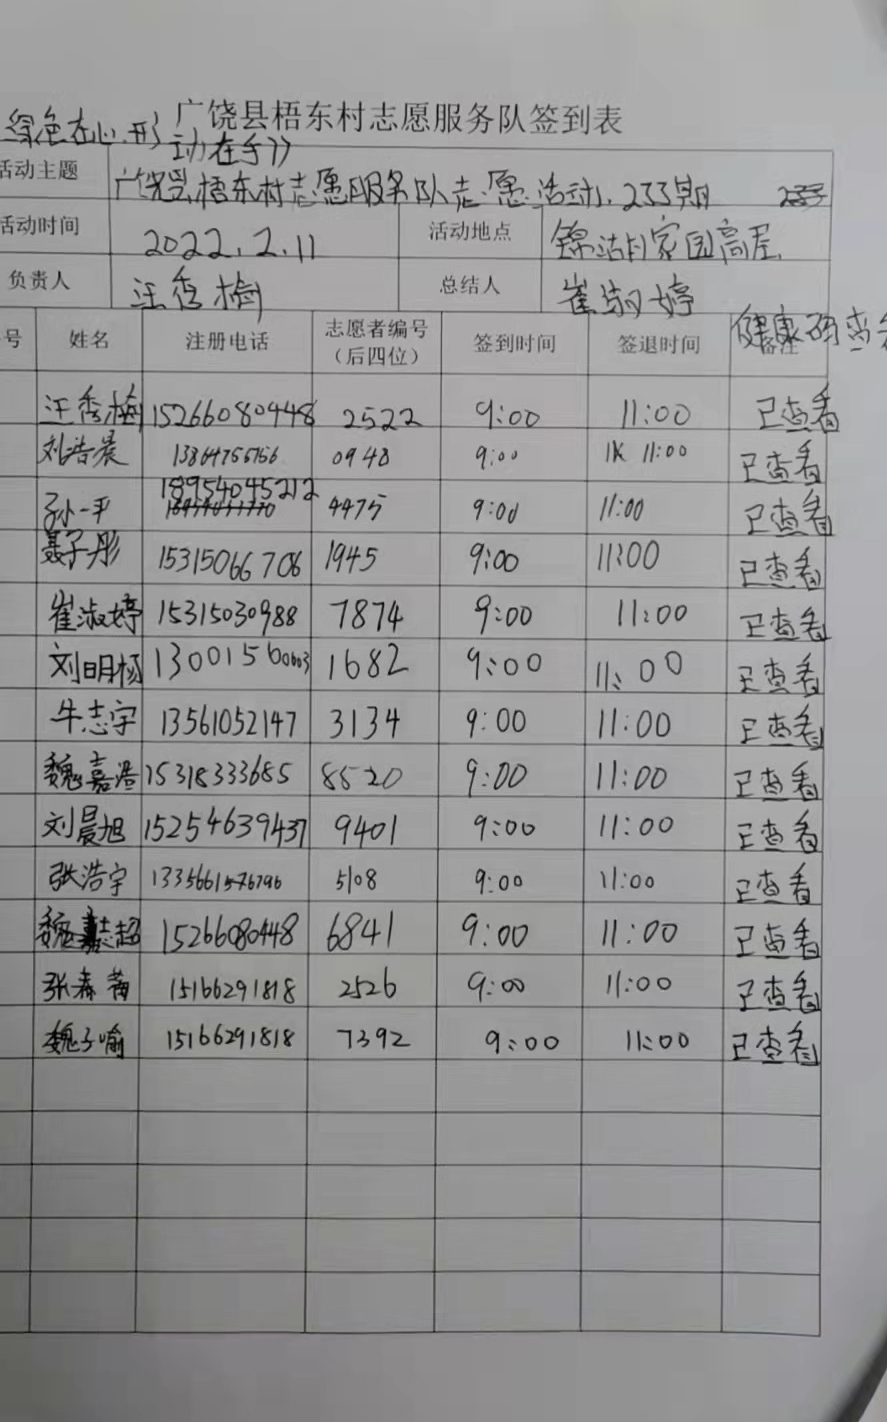 广饶县梧东村志愿服务队签到表
绿色在心,行
动在手》
活动主题 广饶县梧东村志愿服务队志愿活动,233期
活动时间 2022.2.11 活动地点
负责人 汪秀梅 总结人 崔淑婷
号 姓名 注册电话 志愿者编号（后四位） 签到时间 签退时间 备注 健康码查
汪秀梅 15266080448 2522 9:00 11:00 已查看
刘浩晨 13864755756 0948 9:00 11:00 已查看
孙一平 18954045212 4475 9:00 11:00 已查看
聂子彤 15315066706 1945 9:00 11:00 已查看
崔淑婷 15315030988 7874 9:00 11:00 已查看
刘明杨 13001560603 1682 9:00 11:00 已查看
牛志宇 13561052147 3134 9:00 11:00 已查看
魏嘉浩 15318333685 8520 9:00 11:00 已查看
刘晨旭 15254639437 9401 9:00 11:00 已查看
张浩宇 5108 9:00 11:00 已查看
魏志超 15266080448 6841 9:00 11:00 已查看
张春 15166291818 2526 9:00 11:00 已查看
魏子喻 15166291818 7392 9:00 11:00 已查看